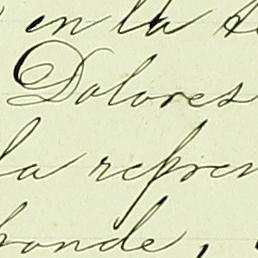 en la
Dolores
la repren
ponde,